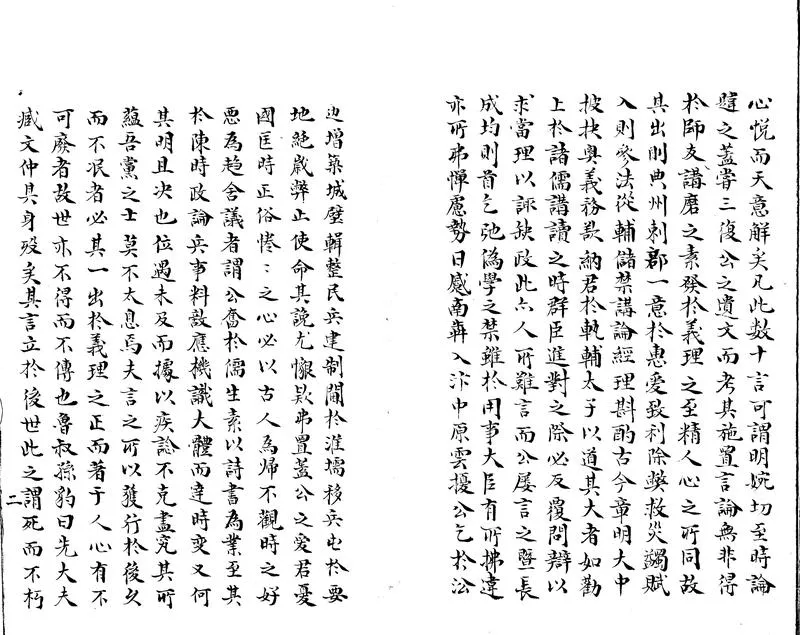 心悅而天意解矣凡此数十言可謂明婉切至時論
韙之蓋嘗三復公之遺文而考其施置言論無非得
於師友講磨之素發於義理之至精人心之所同故
其出則典州刺郡一意於惠愛致利除獘救災蠲賦
入則參法從輔儲禁講論經理斟酌古今章明大中
披抉奧義務裁納君於軌輔太子以道其大者如勸
上於諸儒講讀之時群臣進對之際必反覆問辯以
求當理以諏缺政此六人所難言而公屡言之暨長
成均則首乞弛偽學之禁雖於用事大臣有所拂違
亦所弗憚慮勢日感南犇入汴中原雲擾公乞於㳂
边增築城壁輯整民兵建制閫於淮壖移兵屯於要
地絶歲弊止使命其說尤懒欵弗置蓋公之愛君憂
國匡時正俗惓〻之心必以古人為歸不觀時之好
惡為趋舍議者謂公奮於儒生素以詩書為業至其
於陳時政論兵事料敌應機識大體而達時变又何
其明且决也位遇未及而據以疾諗不克盡究其所
藴吾黨之士莫不太息焉夫言之所以獲行於後久
而不泯者必其一出於義理之正而著于人心有不
可廢者故世亦不得而不傳也魯叔孫豹曰先大夫
臧文仲其身殁矣其言立於後世此之謂死而不朽
二